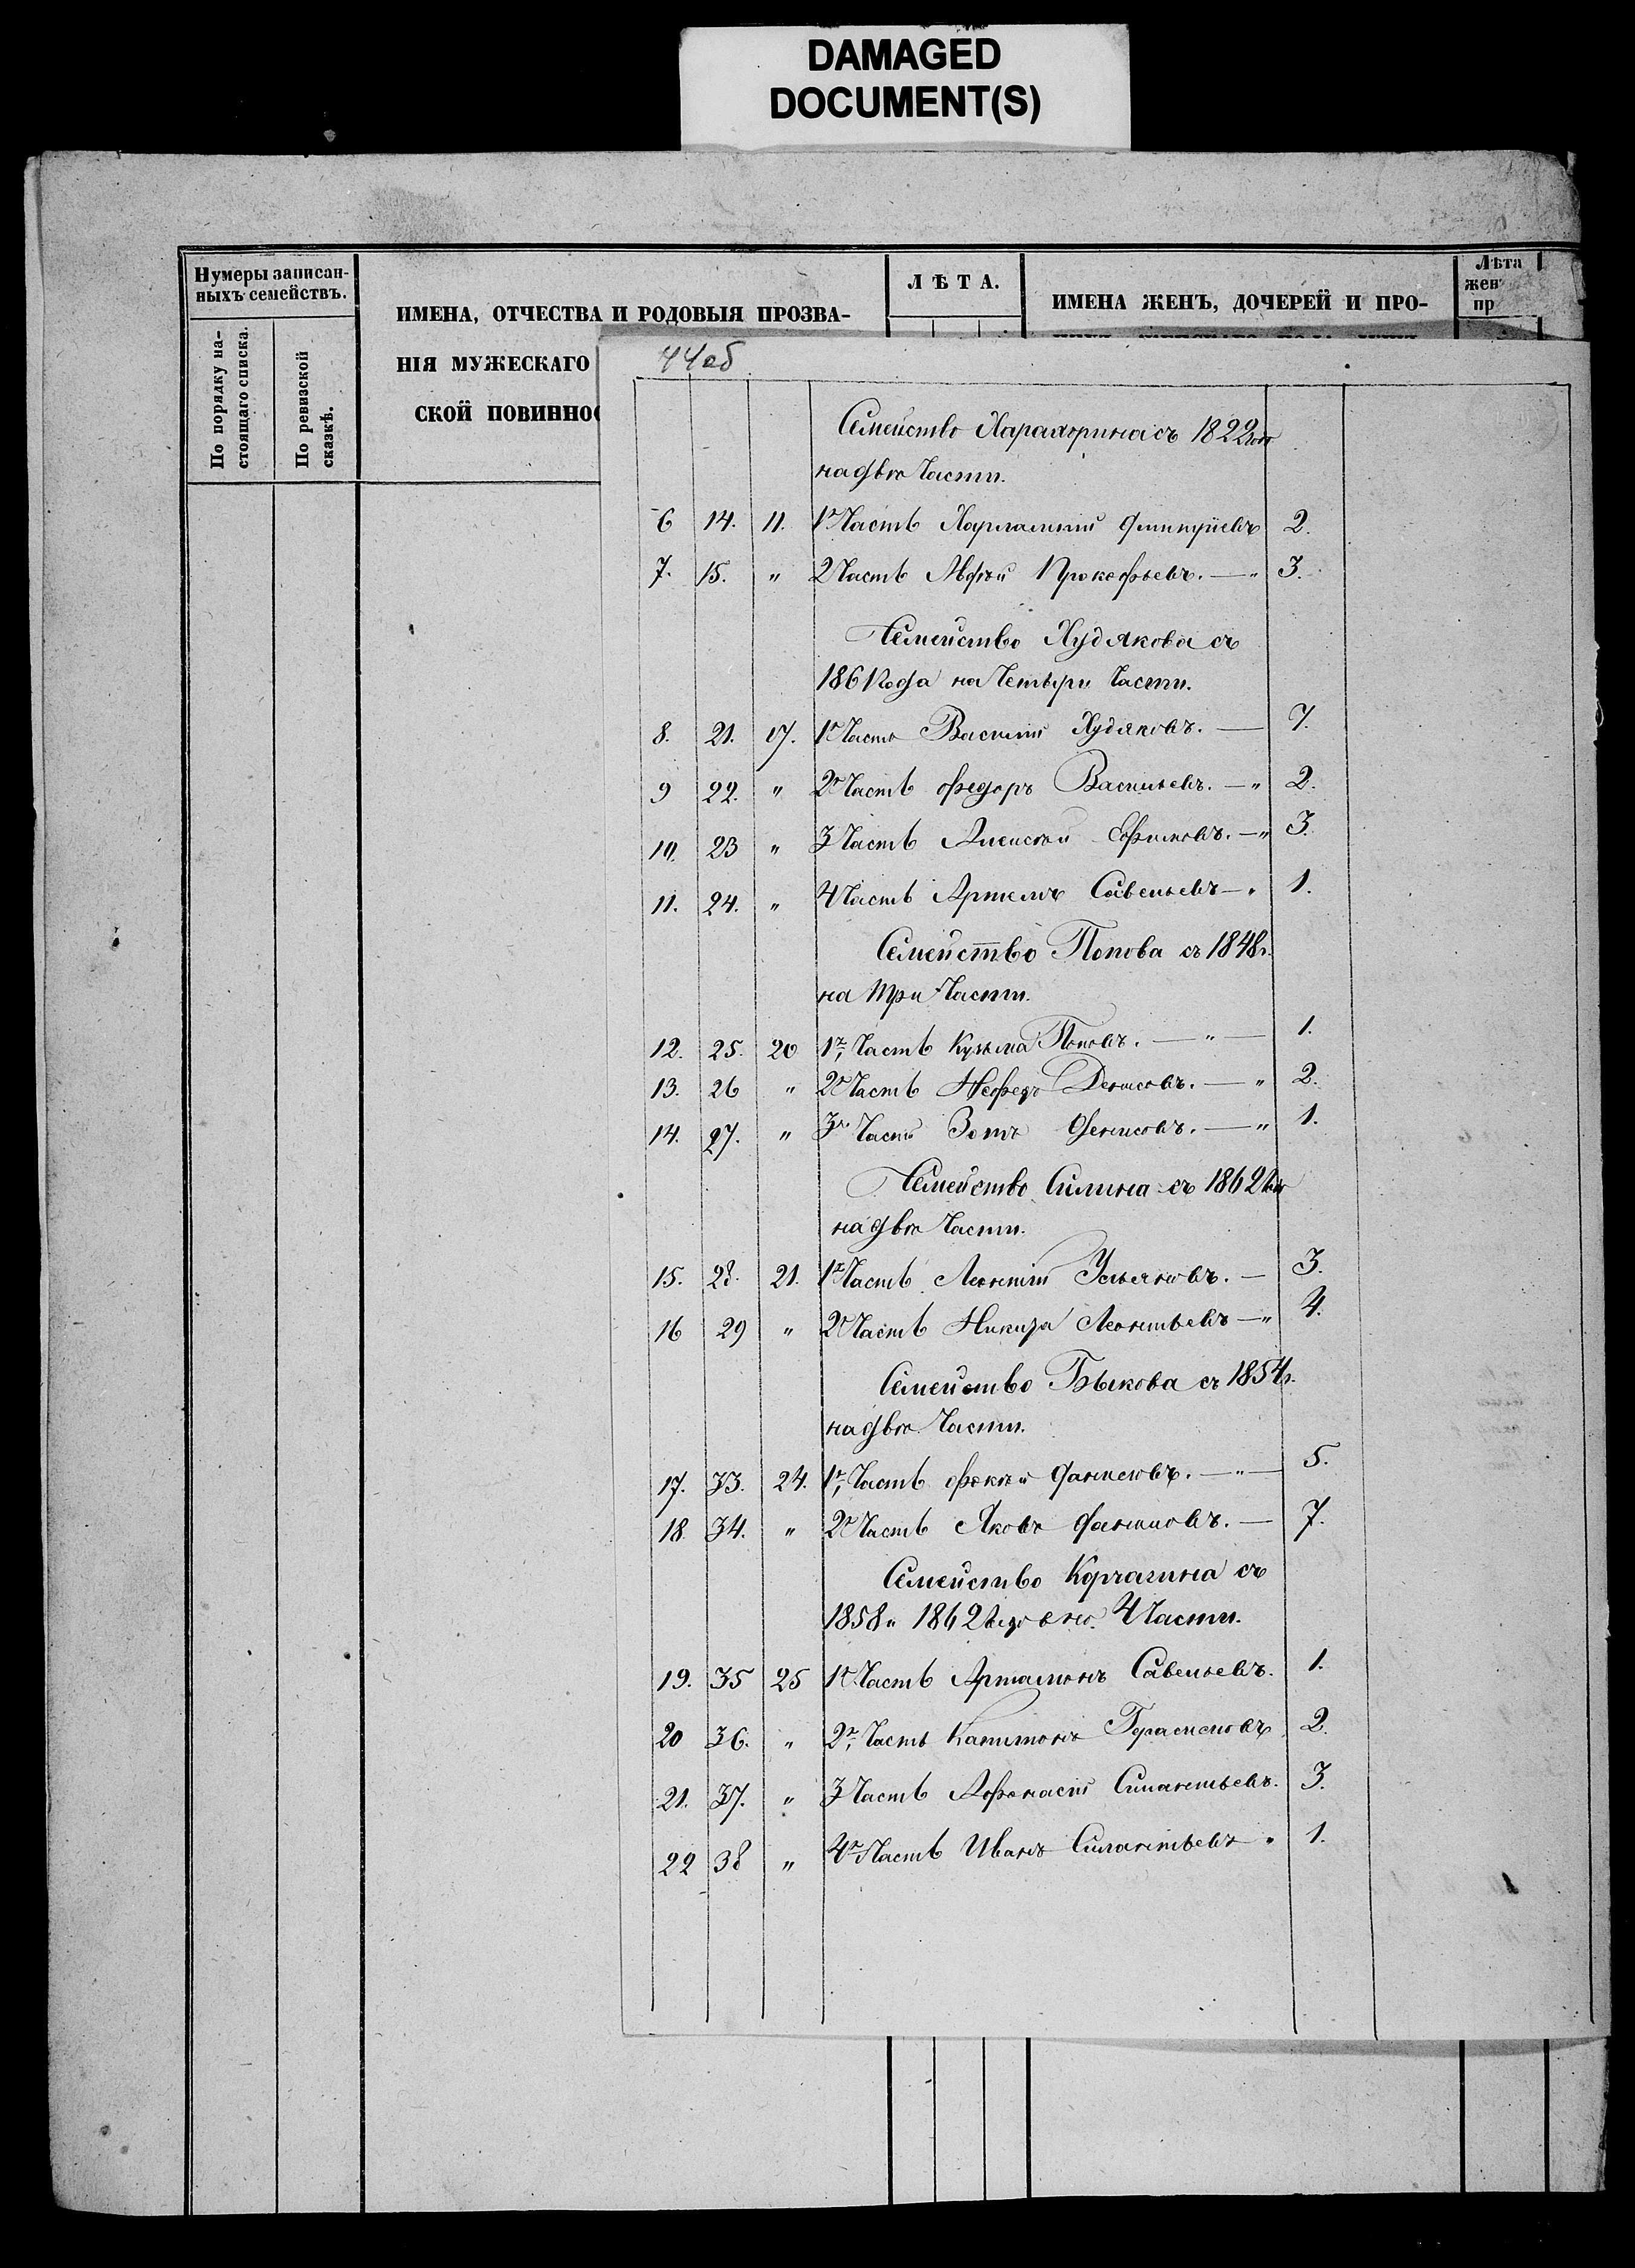 DAMAGED
DOCUMENT(S)
Нумеры записан-
ныхъ семействъ.
По порядку на-
стоящаго списка.
По ревизской
сказкѣ.
ИМЕНА, ОТЧЕСТВА И РОДОВЫЯ ПРОЗВА-
НІЯ МУЖЕСКАГО
СКОЙ ПОВИННОС
ЛѢТА.
ИМЕНА ЖЕНЪ, ДОЧЕРЕЙ И ПРО-
Лѣта
жен
пр
44об
Семейство съ 1822
на двѣ Части.
6 14. 11. 1я Часть 2.
7. 15. " 2 Часть Прокофьевъ. — " 3.
Семейство Худякова съ
1861 года на Четыри Части.
8. 21. 17. 1я Часть Василій Худяковъ. — 7.
9 22. " 2я Часть Федоръ Васильевъ. — " 2.
10. 23 " 3 Часть Алексѣй Ефимовъ. — " 3.
11. 24. " 4 Часть Артемъ Савельевъ — " 1.
Семейство Попова съ 1848 г.
на три Части.
12. 25. 20 1я, Часть Кузьма Поповъ. — " — 1.
13. 26 " 2я Часть Нефедъ Денисовъ. — " 2.
14. 27. " 3я Часть Зотъ Денисовъ. — " 1.
Семейство Силина съ 1862
на двѣ Части.
15. 28. 21. 1я Часть Леонтій Ульяновъ. — 3.
16 29 " 2я Часть Никита Леонтьевъ — " 4.
Семейство Быкова съ 1854 г.
на двѣ Части.
17. 33. 24. 1я, Часть Даниловъ. — " — 5.
18. 34. " 2я Часть Яковъ Даниловъ. — 7.
Семейство Корчагина съ
1858 и 1862 на 4 Части.
19. 35 25 1я Часть Артамонъ Савельевъ. 1.
20 36. " 2я, Часть Капитонъ Герасимовъ 2.
21. 37. " 3 Часть Афонасій Силантьевъ. 3.
22 38 " 4я Часть Иванъ Силантьевъ " 1.